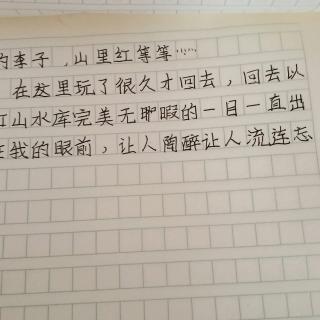 的李子，山里红等等……
在这里玩了很久才回去，回去以
红山水库完美无瑕的一目一直出
在我的眼前，让人陶醉让人流连忘